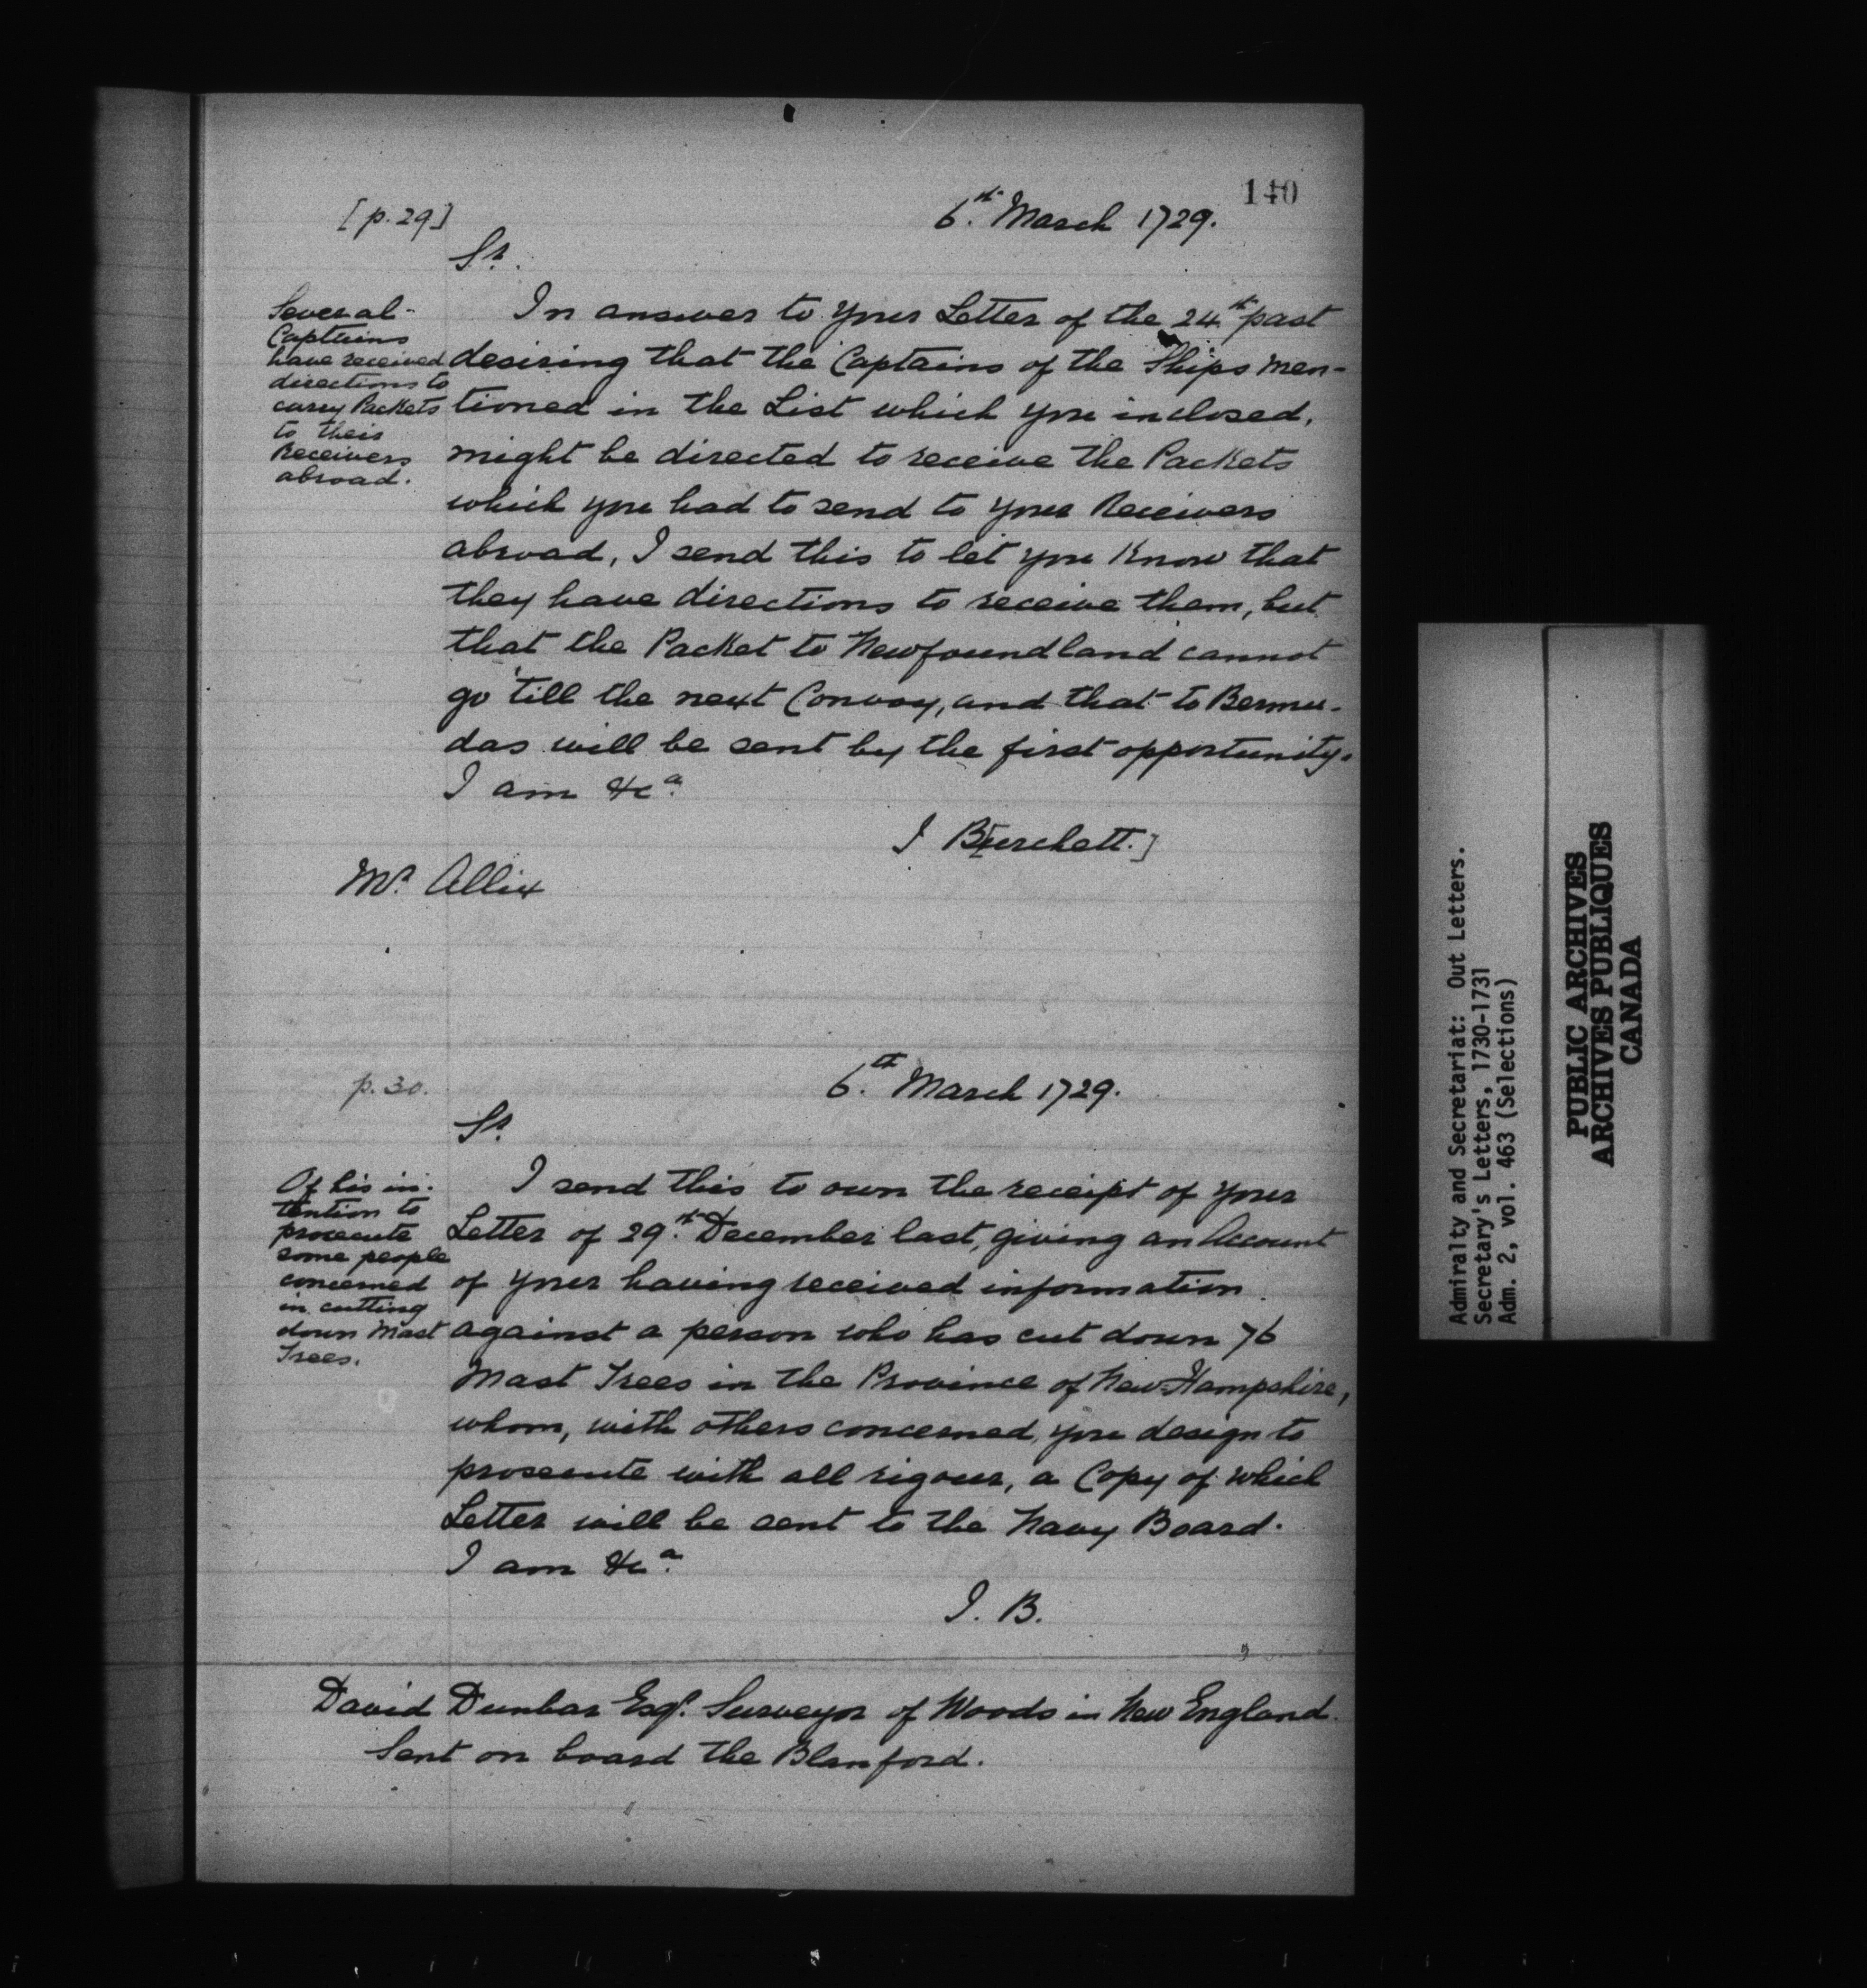 140
[p. 29]
6.th March 1729.
Sr.
Several
Captains
have received
directions to
carry Packets
to their
Receivers
abroad.
In answer to your Letter of the 24.th past
desiring that the Captains of the Ships men-
tioned in the List which you inclosed,
might be directed to receive the Packets
which you had to send to your Receivers
abroad, I send this to let you know that
they have directions to receive them, but
that the Packet to Newfoundland cannot
go 'till the next Convoy, and that to Bermu-
das will be sent by the first opportunity.
I am &c.a
J B[urchett.]
Mr. Allix
p. 30.
6.th March 1729.
Sr.
Of his in-
tention to
prosecute
some people
concerned
in cutting
down Mast
Trees.
I send this to own the receipt of your
Letter of 29.th December last, giving an Account
of your having received information
against a person who has cut down 76
Mast Trees in the Province of New Hampshire,
whom, with others concerned, you design to
prosecute with all rigour, a Copy of which
Letter will be sent to the Navy Board.
I am &c.a
J. B.
David Dunbar Esqr. Surveyor of Woods in New England.
Sent on board the Blanford.
Admiralty and Secretariat: Out Letters.
Secretary's Letters, 1730-1731
Adm. 2, vol. 463 (Selections)
PUBLIC ARCHIVES
ARCHIVES PUBLIQUES
CANADA